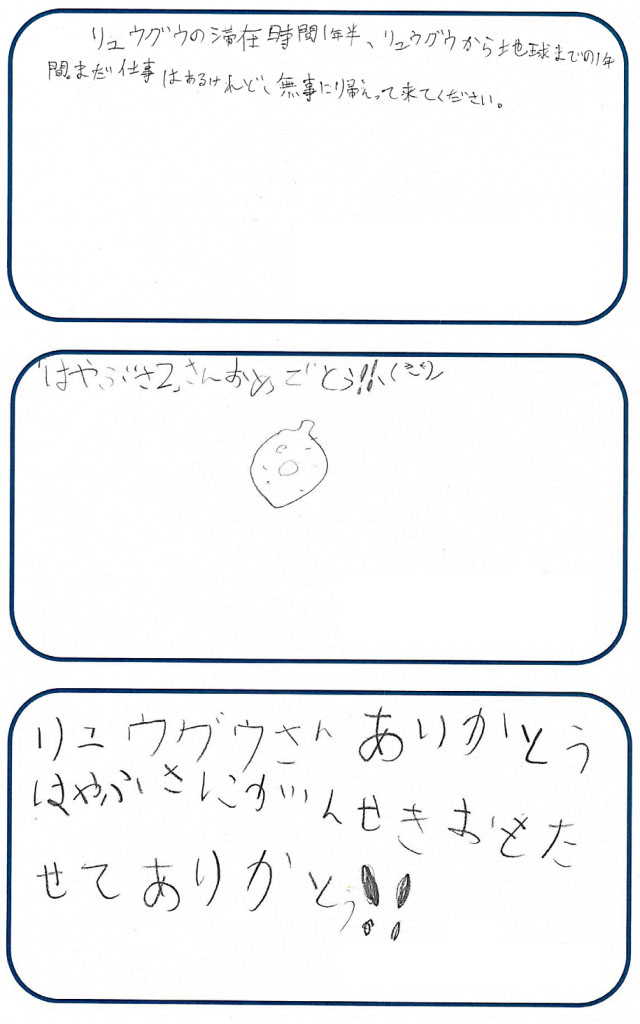 リュウグウの滞在時間1年半、リュウグウから地球までの1年
間。まだ仕事はあるけれど、無事に帰えって来てください。
「はやぶさ2」さんおめでとう!!、
リュウグウさんありがとう
はやぶさにがんせきおもた
せてありがとう!!